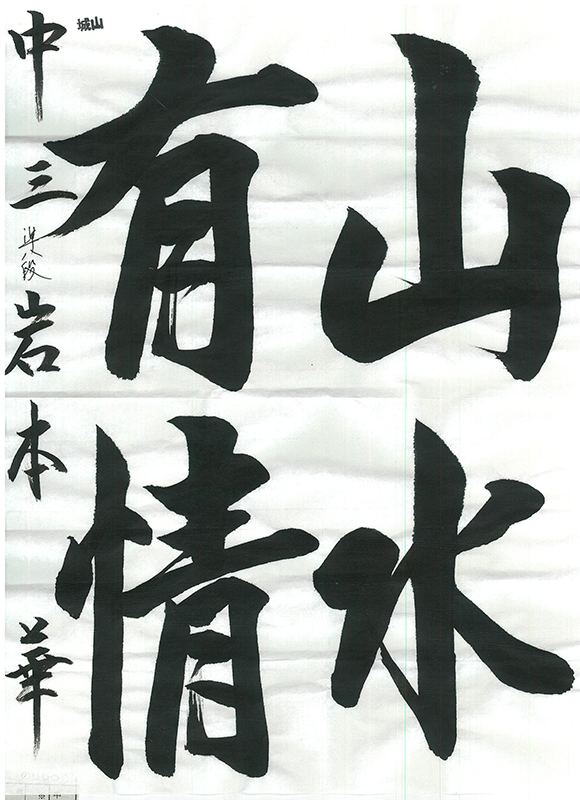 山水
有情
中三 準段 岩本 華
城山